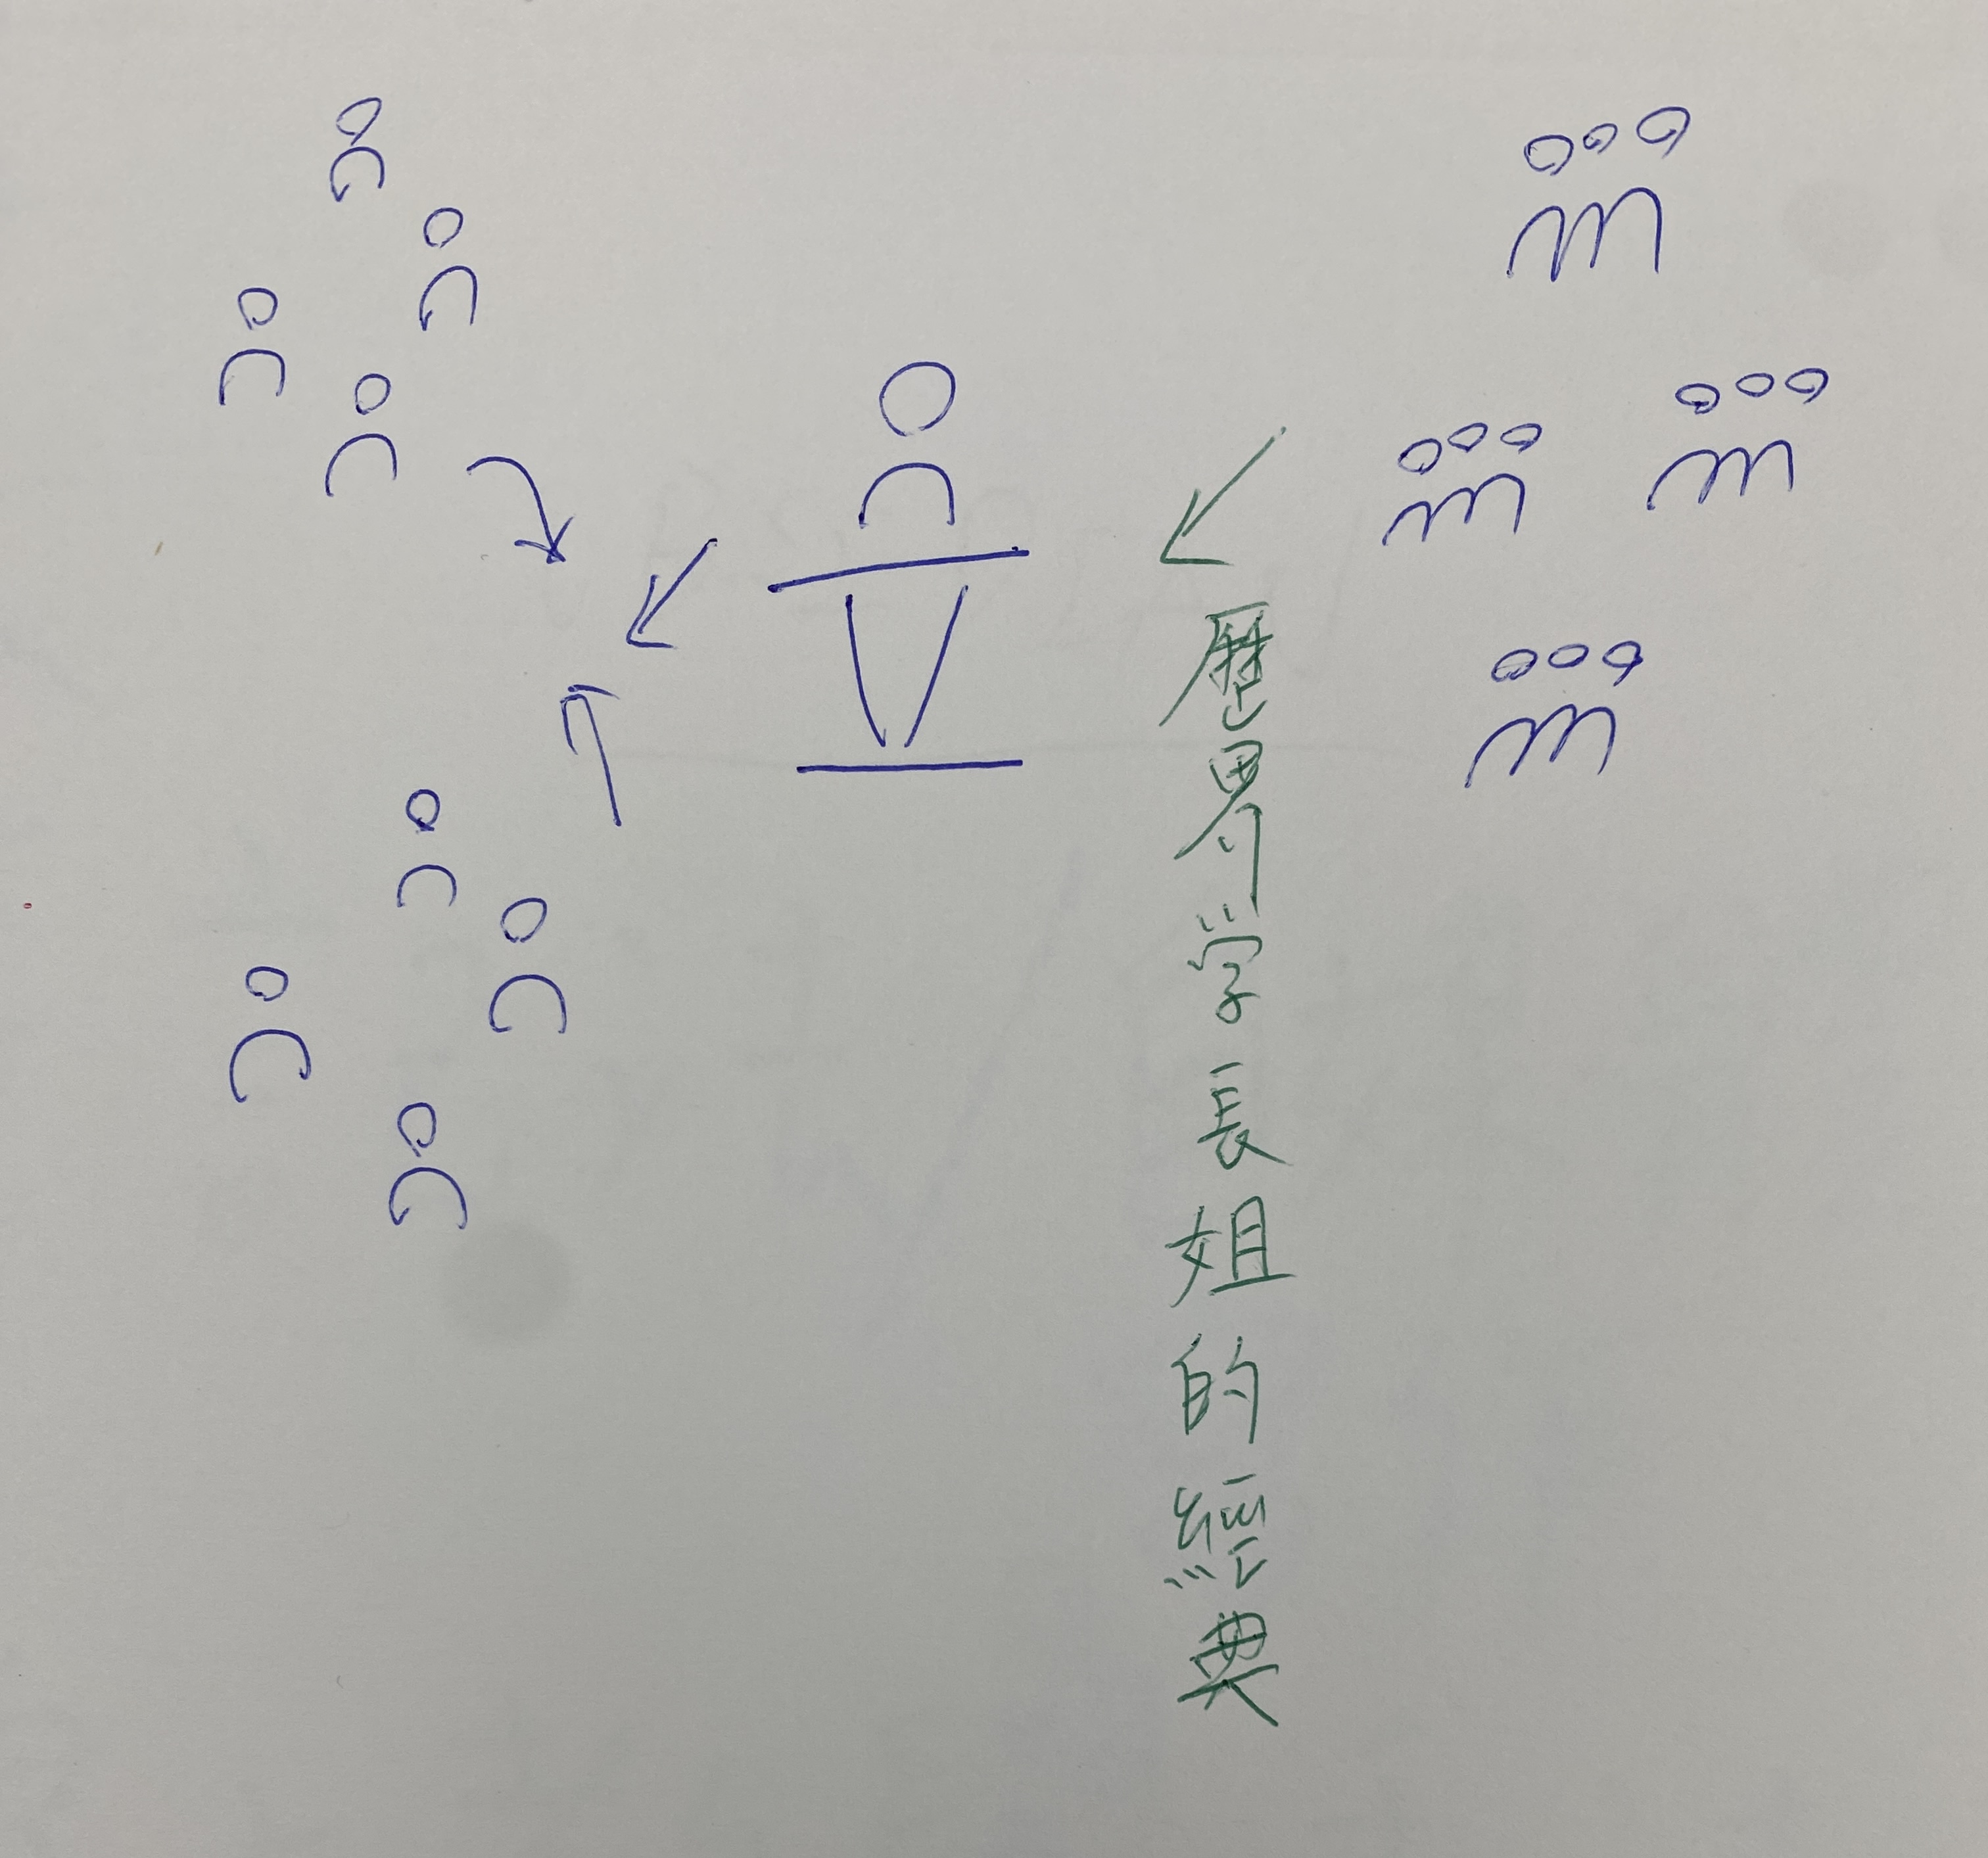 歷界学長姐的經典